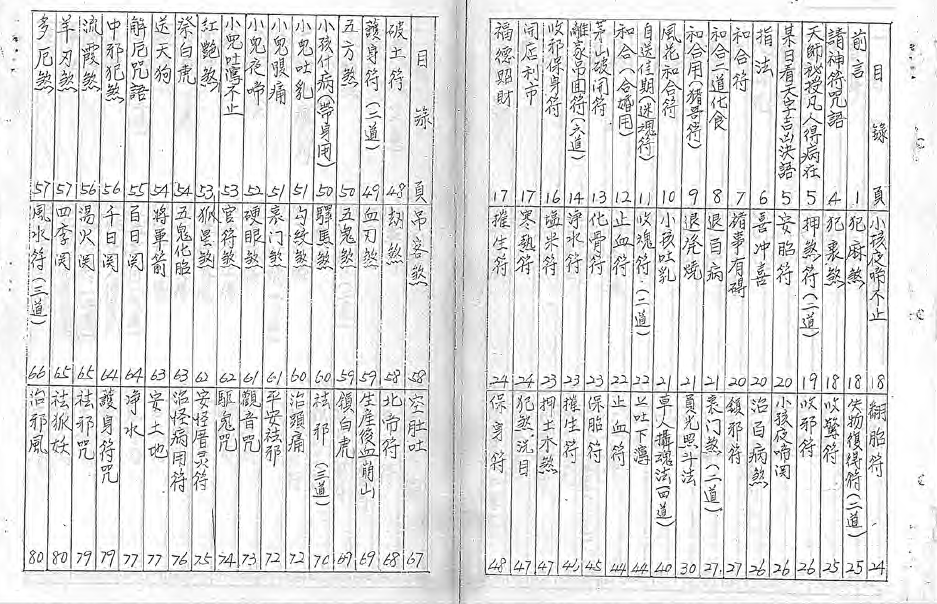 目錄 頁
前言 1
請神符咒語 4
天師祕授凡人得病在 5
某日看天字吉凶決語 5
指法 6
和合符 7
和合二道化食 8
和合用(猪吾符) 9
風花和合符 10
自送佳期(迷魂符) 11
和合(合婚用) 12
茅山破開符 13
離亥吊面符(六道) 14
收邪保身符 16
開店利市 17
福德賜財 17
小孩夜啼不止 18
犯麻煞 18
犯喪煞 18
押煞符(二道) 19
安胎符 20
喜冲喜 20
諸事有碍 20
退百病 21
退燒 21
小孩吐乳 21
收魂符(二道) 22
止血符 22
化骨符 23
淨水符 23
塩米符 23
寒熱符 24
摧生符 24
綑胎符 24
失物復得符(二道) 25
吹聾符 25
吹邪符 26
小孩夜啼関 26
治百病煞 26
鎮邪符 27
喪门煞(二道) 27
員光照斗法 30
草人攝魂法(四道) 40
止吐下瀉 44
止血符 44
保胎符 45
摧生符 46
押土水煞 47
犯煞洗目 47
保身符 48
目錄 頁
破土符 48
護身符(二道) 49
五方煞 50
小孩什病(帶身用) 50
小兒吐乳 51
小鬼腹痛 51
小兒夜啼 52
小兒吐瀉不止 53
紅艷煞 53
祭白虎 54
送天狗 54
解厄咒語 55
中邪犯煞 56
流霞煞 56
羊刃煞 57
多厄煞 57
吊客煞 58
劫煞 58
血刃煞 59
五鬼煞 59
驛馬煞 60
勾絞煞 60
喪门煞 61
硬眼煞 61
官符煞 62
狐黑煞 62
五鬼化胎 63
將軍箭 63
百日関 64
千日関 64
湯火関 65
四季関 65
風水符(三道) 66
空肚吐 67
北帝符 68
生產後血崩山 69
鎮白虎 69
祛邪(三道) 70
治頭痛 72
平安祛邪 72
觀音咒 73
驅鬼咒 74
安怪厝灵符 75
治怪病用符 76
安土地 77
淨水 77
護身符咒 79
祛邪咒 79
祛狐妖 80
治邪風 80